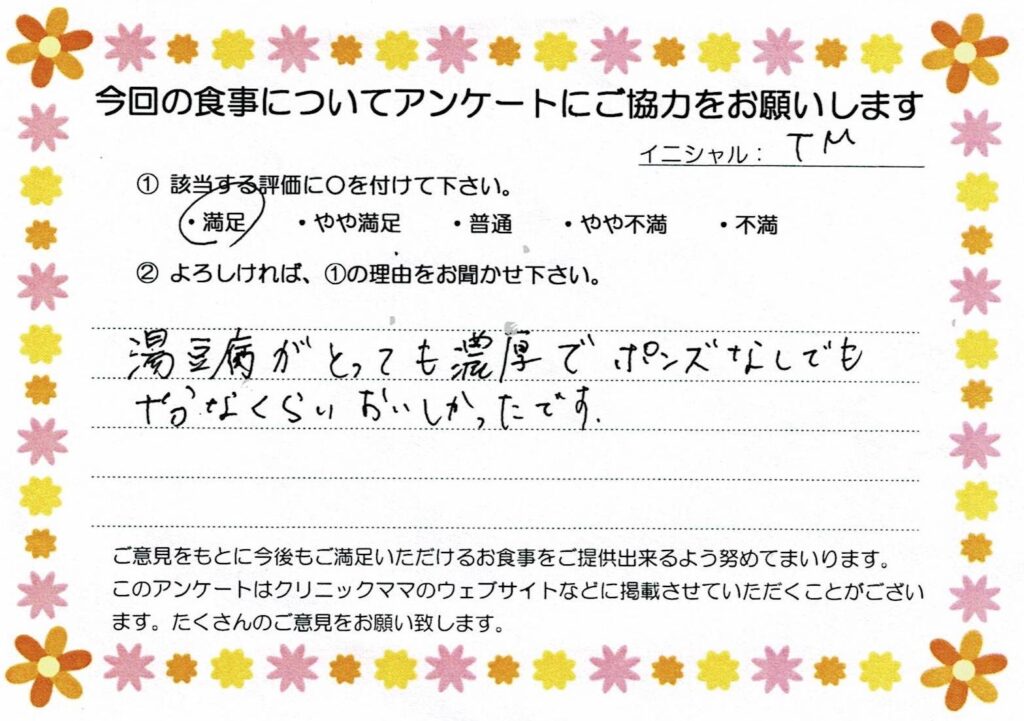 今回の食事についてアンケートにご協力をお願いします
イニシャル： TM
① 該当する評価に〇を付けて下さい。
・満足 ・やや満足 ・普通 ・やや不満 ・不満
② よろしければ、①の理由をお聞かせ下さい。
湯豆腐がとっても濃厚でポンズなしでも
十分なくらいおいしかったです.
ご意見をもとに今後もご満足いただけるお食事をご提供出来るよう努めてまいります。
このアンケートはクリニックママのウェブサイトなどに掲載させていただくことがござい
ます。たくさんのご意見をお願い致します。